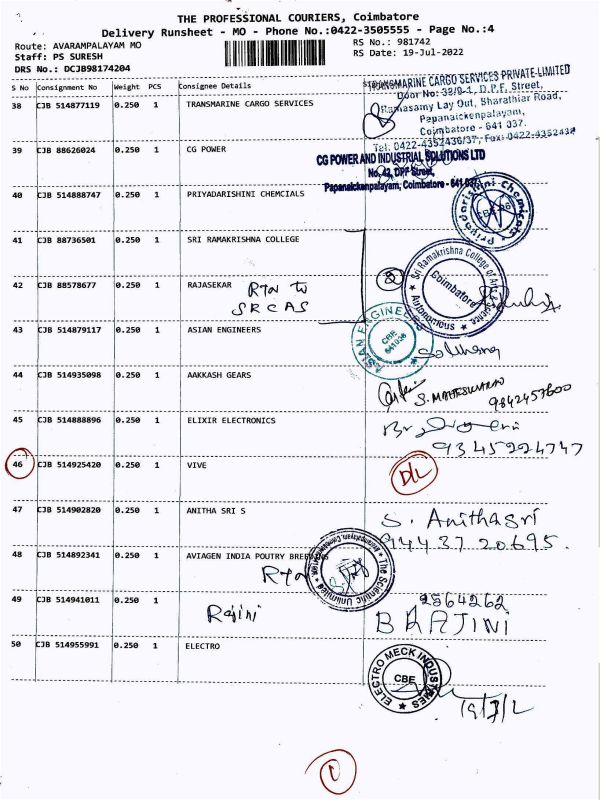 THE PROFESSIONAL COURIERS, Coimbatore
Delivery Runsheet - MO - Phone No.:0422-3505555 - Page No.:4
Route: AVARAMPALAYAM MO
RS No.: 981742
Staff: PS SURESH
RS Date: 19-Jul-2022
DRS No.: DCJB98174204
S No Consignment No Weight PCS Consignee Details
TRANSMARINE CARGO SERVICES PRIVATE LIMITED
Door No: 32/9-1, D.P.F. Street,
Ramasamy Lay Out, Sharathiar Road,
Papanaickenpalayam,
Coimbatore - 641 037.
Tel: 0422-4352436/37, Fax: 0422-4352438
38 CJB 514877119 0.250 1 TRANSMARINE CARGO SERVICES
39 CJB 88626024 0.250 1 CG POWER
CG POWER AND INDUSTRIAL SOLUTIONS LTD
No. 42, DPF Street,
Papanaickenpalayam, Coimbatore - 641 037.
40 CJB 514888747 0.250 1 PRIYADARISHINI CHEMCIALS
Priyadarishini Chemicals
41 CJB 88736501 0.250 1 SRI RAMAKRISHNA COLLEGE
Sri Ramakrishna College of Arts & Science
Coimbatore
Autonomous
42 CJB 88578677 0.250 1 RAJASEKAR RTN to
SRCAS
2
43 CJB 514879117 0.250 1 ASIAN ENGINEERS
ASIAN ENGINEERS
CBE
641 036
44 CJB 514935098 0.250 1 AAKKASH GEARS
S. MAHESWARAN
9842457600
45 CJB 514888896 0.250 1 ELIXIR ELECTRONICS
9345224747
46 CJB 514925420 0.250 1 VIVE
D/L
47 CJB 514902820 0.250 1 ANITHA SRI S
S. Anithasri
94437 20695.
48 CJB 514892341 0.250 1 AVIAGEN INDIA POUTRY BREEDING
RTN
The Scientific Unlimited
49 CJB 514941011 0.250 1
Rajini
2564262
B RAJINI
50 CJB 514955991 0.250 1 ELECTRO
ELECTRO MECK INDUSTRIES
CBE
19/7/2
1